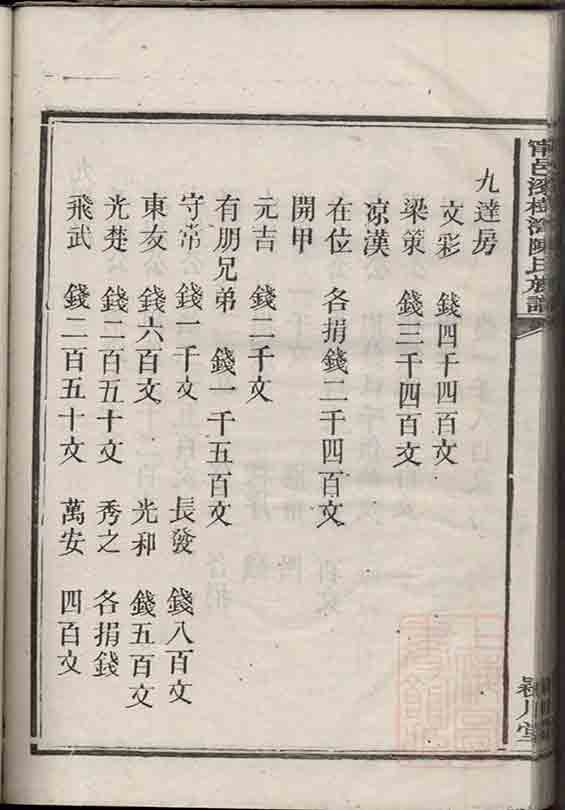 九達房
文彩　錢四千四百文
梁䇿　錢三千四百文
凉漢
在位　各捐錢二千四百文
開甲
元吉　錢二千文
有朋兄弟　錢一千五百文
守常　錢一千文　長發　錢八百文
東友　錢六百文　光和　錢五百文
光楚　錢二百五十文　秀之　各捐錢
飛武　錢二百五十文　萬安　四百文
陳氏族譜
潁川堂